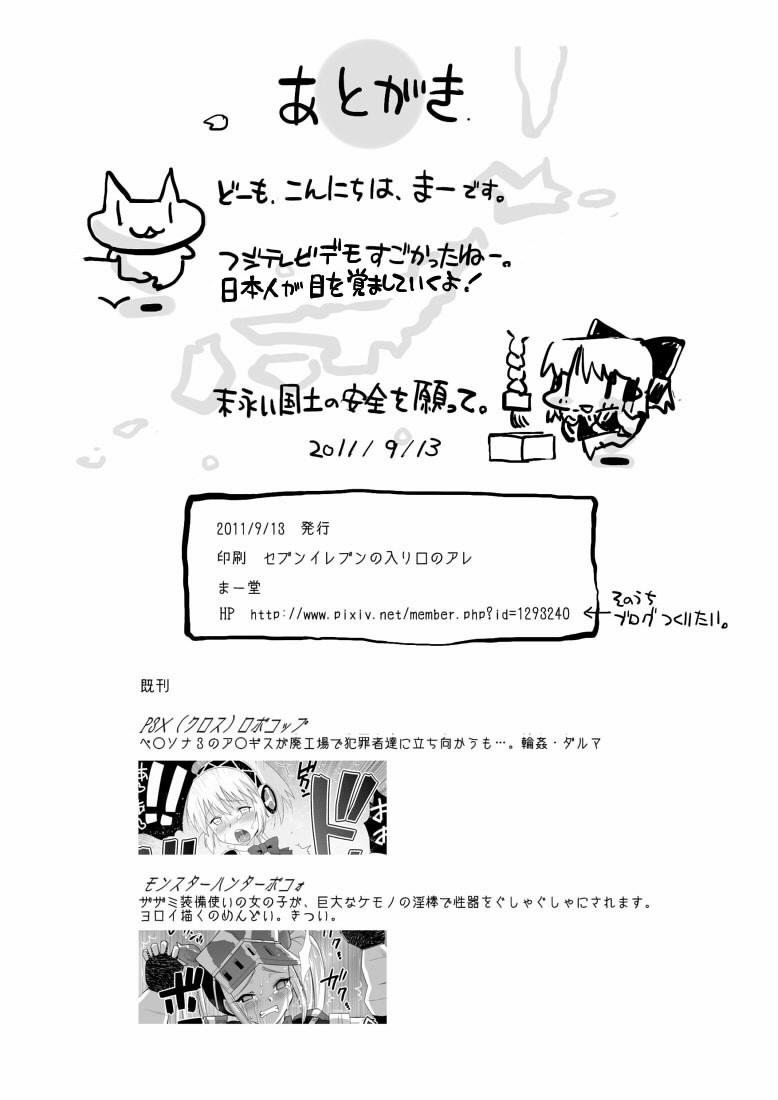 あとがき
どーも、こんにちは、まーです。
フジテレビデモすごかったねー。
日本人が目を覚ましていくよ！
末永い国土の安全を願って。
2011/9/13
2011/9/13 発行
印刷 セブンイレブンの入り口のアレ
まー堂
HP http://www.pixiv.net/member.php?id=1293240
そのうち
ブログつくりたい。
既刊
P3X（クロス）ロボコップ
ペ〇ソナ3のア〇ギスが廃工場で犯罪者達に立ち向かうも…。輪姦・ダルマ
モンスターハンターボコォ
ザザミ装備使いの女の子が、巨大なケモノの淫棒で性器をぐしゃぐしゃにされます。
ヨロイ描くのめんどい。きつい。